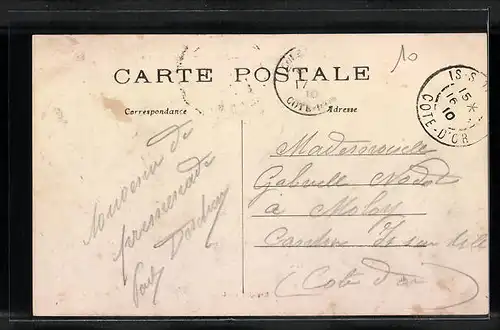 10
CARTE POSTALE
Correspondance
Adresse
17
10
COTE-D'OR
IS-S
15 *
16
10
COTE-D'OR
Souvenir de
promenade
Mademoiselle
Gabrielle Nodot
à Moloy
Canton Is sur Tille
(Cote d'or)